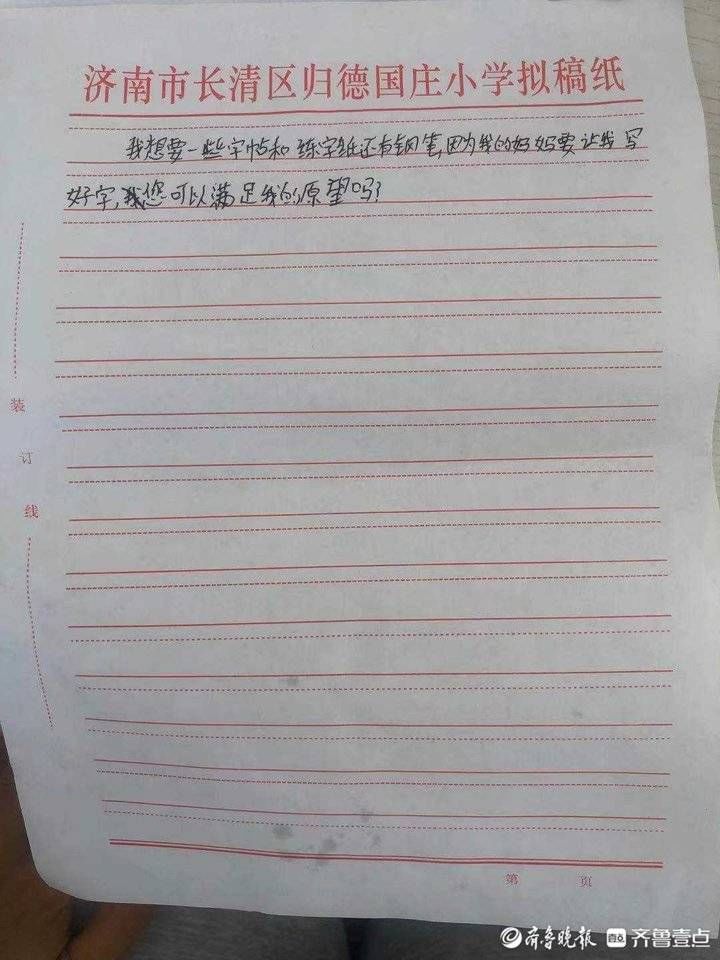 济南市长清区归德国庄小学拟稿纸
我想要一些字帖和练字纸还有钢笔,因为我的妈妈要让我写
好字,我您可以满足我的原望吗?
装
订
线
第 页
齐鲁晚报 齐鲁壹点